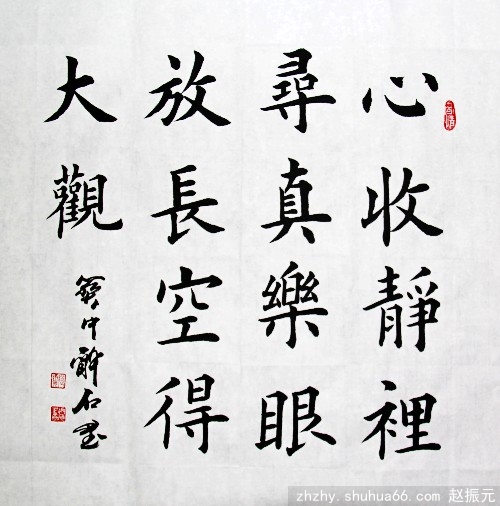 心收靜裡
尋真樂眼
放長空得
大觀
zhzhy.shuhua66.com 赵振元